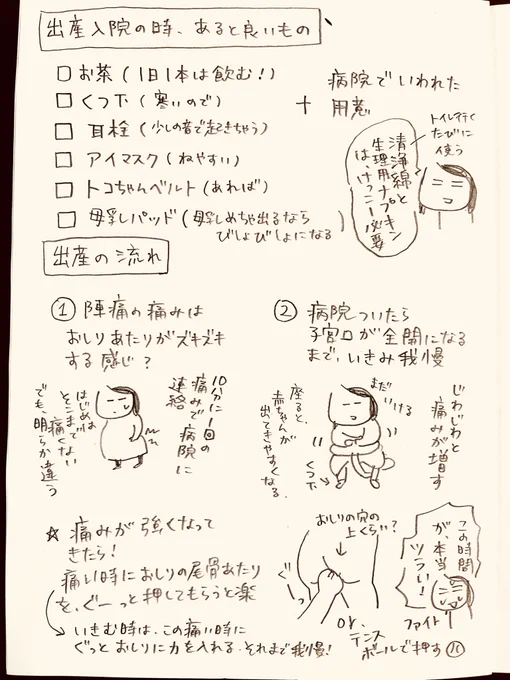 出産入院の時、あると良いもの
□ お茶(1日1本は飲む!)
□ くつ下(寒いので)
□ 耳栓(少しの音で起きちゃう)
□ アイマスク(ねやすい)
□ トコちゃんベルト(あれば)
□ 母乳パッド(母乳めちゃ出るなら
びしょびしょになる)
+ 病院でいわれた
用意
トイレ行く
たびに
使う
清浄綿と
生理用ナプキン
は、けっこー必要
出産の流れ
① 陣痛の痛みは
おしりあたりがズキズキ
する感じ?
10分に1回の
痛みで病院に
連絡
はじめは
そこまで
痛くない
でも、明らか違う
② 病院ついたら
子宮口が全開になる
まで、いきみ我慢
まだいける
じわじわと
痛みが増す
座ると、
赤ちゃんが
出てきやすくなる
くつ下
☆ 痛みが強くなって
きたら!
痛い時におしりの尾骨あたり
を、ぐーっと押してもらうと楽
いきむ時は、この痛い時に
ぐっとおしりに力を入れる。それまで我慢!
おしりの穴の
上くらい?
ぐーっ
or、
テニス
ボールで押す
この時間
が、本当
ツラい!
ファイト